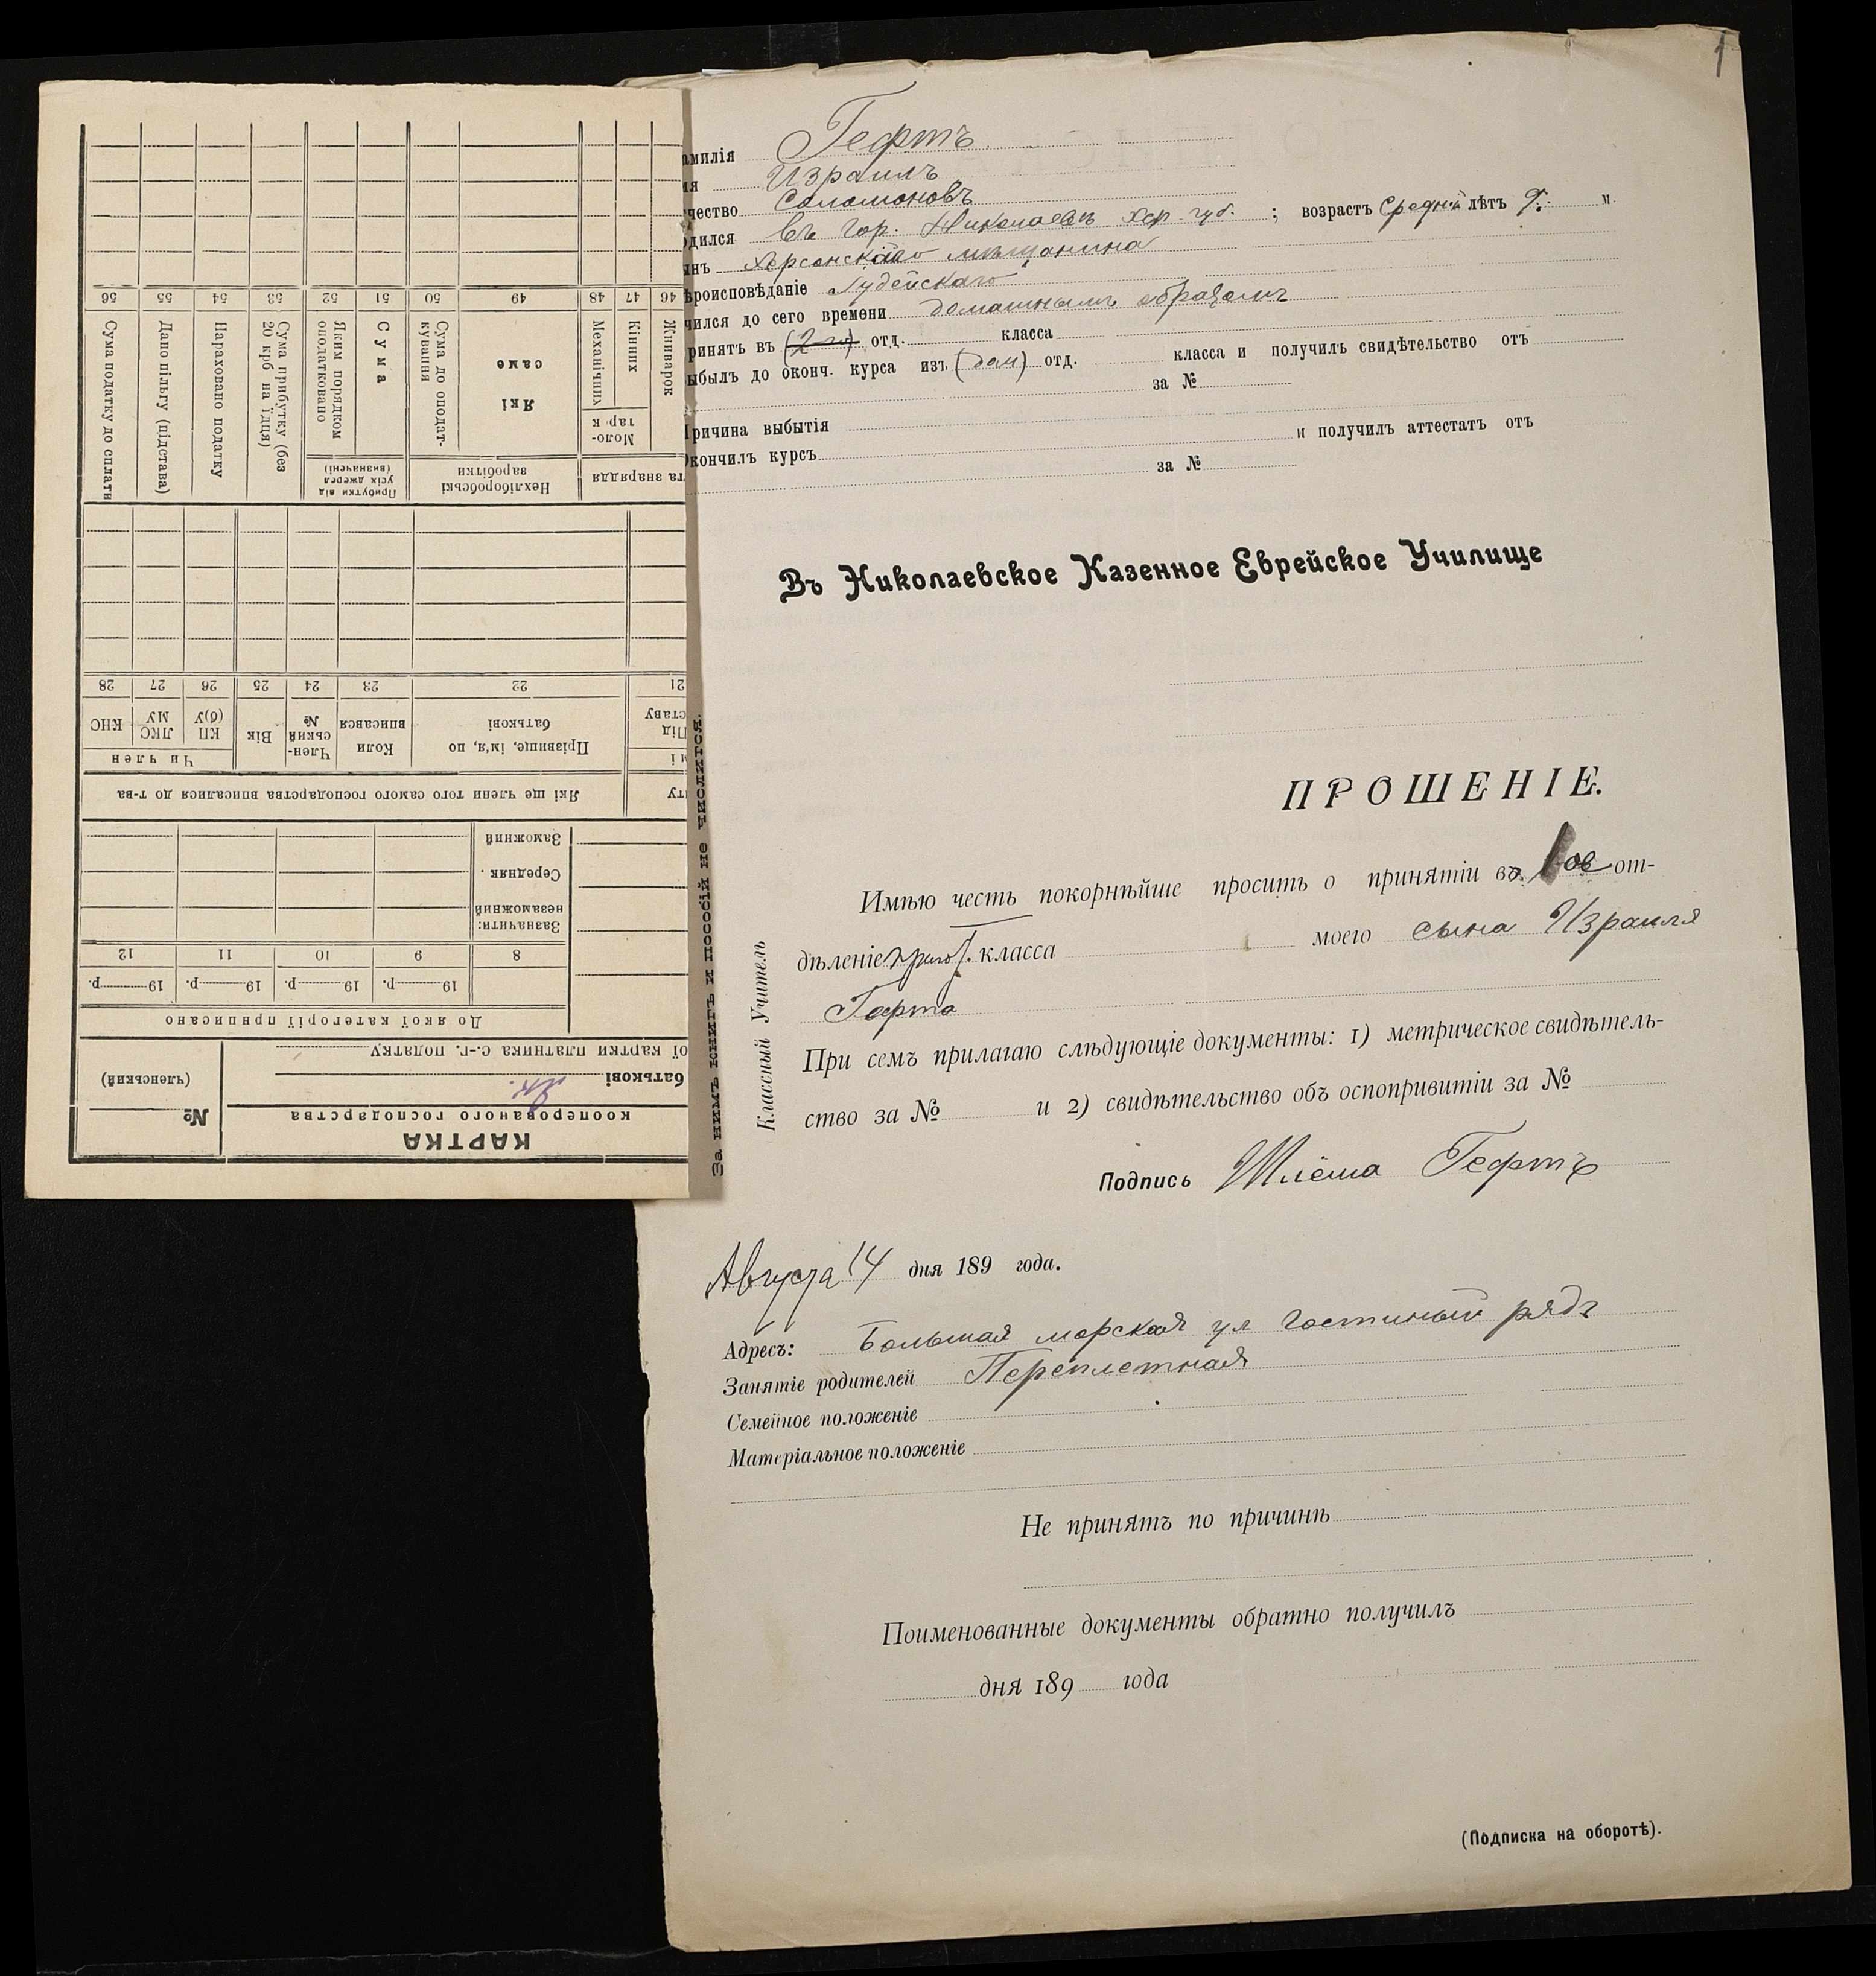 1
амилія Гефтъ
Израиль
чество Соломоновъ
дился въ гор. Николаевѣ Хер. губ. ; возрастъ Средній лѣтъ 9. м.
нъ херсонскаго мѣщанина
ѣроисповѣданіе Іудейскаго
чился до сего времени домашнымъ образомъ
ринятъ въ (2-ое) отд. класса
ыбылъ до оконч. курса изъ (дом) отд. класса и получилъ свидѣтельство отъ
за №
ричина выбытія
кончилъ курсъ и получилъ аттестатъ отъ
за №
Въ Николаевское Казенное Еврейское Училище
ПРОШЕНІЕ.
Имѣю честь покорнѣйше просить о принятіи въ 1-ое от-
дѣленіе пригот. класса моего сына Израиля
Гефта
При семъ прилагаю слѣдующіе документы: 1) метрическое свидѣтель-
ство за № и 2) свидѣтельство объ оспопривитіи за №
Подпись Шлема Гефтъ
Августа 14 дня 189 года.
Адресъ: Большая морская ул гостиный рядъ
Занятіе родителей Переплетная
Семейное положеніе
Матеріальное положеніе
Не принятъ по причинѣ
Поименованные документы обратно получилъ
дня 189 года
(Подписка на оборотѣ).
Классный Учитель
За нимъ книгъ и пособій не числится.
КАРТКА
кооперованого господарства
№
(членський)
батькові
ої картки платника с.-г. податку
До якої категорії приписано
19 р. 19 р. 19 р. 19 р.
8 9 10 11 12
Зазначити:
незаможний
Середняк
Заможний
Які ще члени того самого господарства вписалися до т-ва
Прізвище, ім'я, по батькові
Коли вписався
Член-ський №
Вік
Чи член
КП (б)У
ЛКС МУ
КНС
21 22 23 24 25 26 27 28
та знаряддя
Нехліборобські заробітки
Прибутки від усіх джерел (визначені)
Жниварок
Кінних
Механічних
Моло-тарок
Які саме
Сума до оподат-кування
Сума
Яким порядком оподатковано
Сума прибутку (без 20 крб на їдця)
Нараховано податку
Дано пільгу (підстава)
Сума податку до сплати
46 47 48 49 50 51 52 53 54 55 56